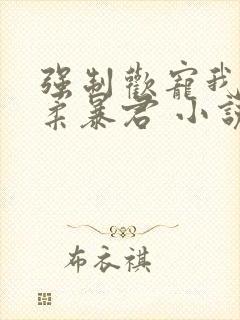 强制歡寵我
柔暴君 小說
布衣祺